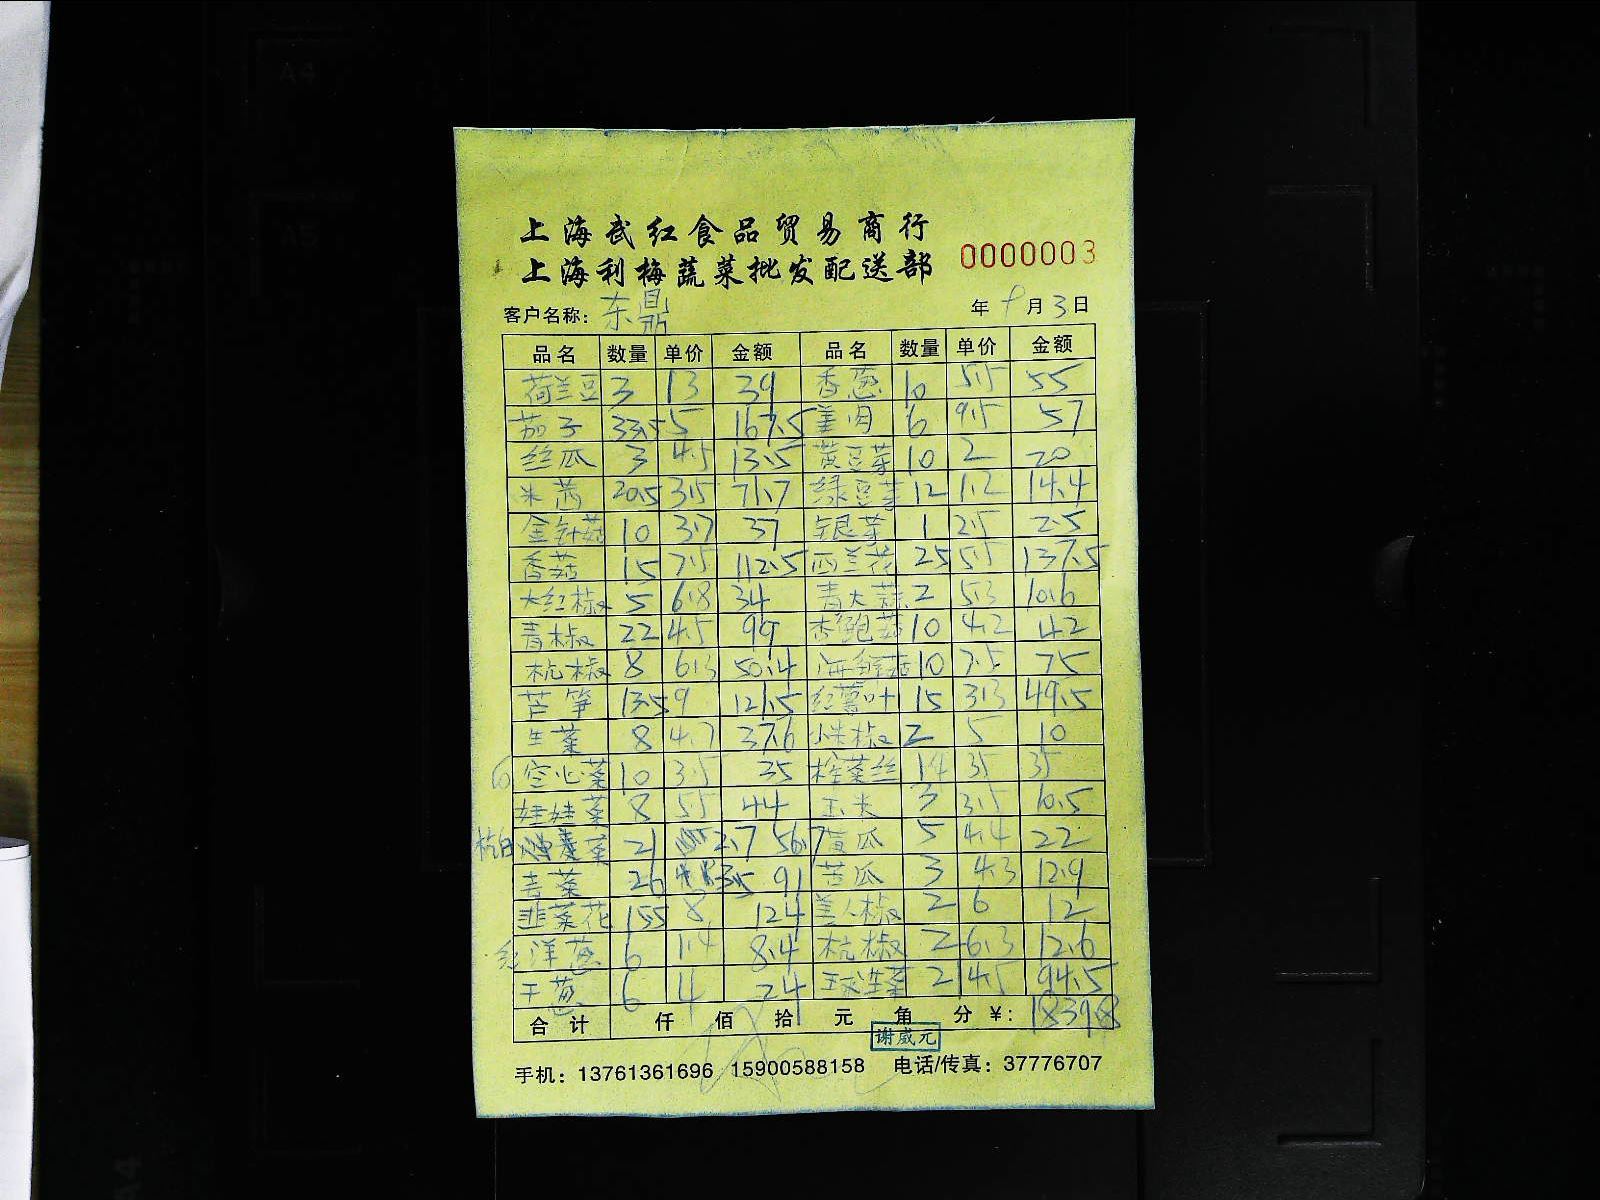 上海武红食品贸易商行
上海利梅蔬菜批发配送部 0000003
客户名称: 东鼎 年 9月3日
品名 数量 单价 金额 品名 数量 单价 金额
荷兰豆 3 13 39 香葱 10 5.5 55
茄子 33.5 5 167.5 姜肉 6 9.5 57
丝瓜 3 4.5 13.5 黄豆芽 10 2 20
米茜 20.5 3.5 71.7 绿豆芽 12 1.2 14.4
金针菇 10 3.7 37 银芽 1 2.5 2.5
香菇 15 7.5 112.5 西兰花 25 5.5 137.5
大红椒 5 6.8 34 青大蒜 2 5.3 10.6
青椒 22 4.5 99 杏鲍菇 10 4.2 42
杭椒 8 6.3 50.4 海鲜菇 10 7.5 75
芦笋 13.5 9 121.5 红薯叶 15 3.3 49.5
生菜 8 4.7 37.6 小米椒 2 5 10
空心菜 10 3.5 35 榨菜丝 14 35 35
娃娃菜 8 5.5 44 玉米 3 3.5 10.5
杭白菜 21 2.7 56.7 黄瓜 5 4.4 22
青菜 26 3.5 91 苦瓜 3 4.3 12.9
韭菜花 15.5 8 124 美人椒 2 6 12
红洋葱 6 1.4 8.4 杭椒 2 6.3 12.6
干葱 6 4 24 球生菜 21 4.5 94.5
合计 仟 佰 拾 元 角 分 ¥: 1839.8
谢威元
手机: 13761361696 15900588158 电话/传真: 37776707
A4
A5
A4